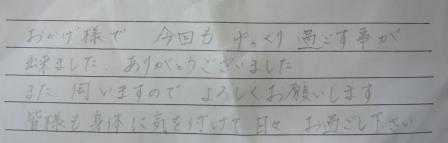 おかげ様で 今回も ゆっくり 過ごす事が
出来ました。ありがとうございました
また 伺いますので よろしくお願いします
皆様も身体に気を付けて 日々 お過ごし下さい